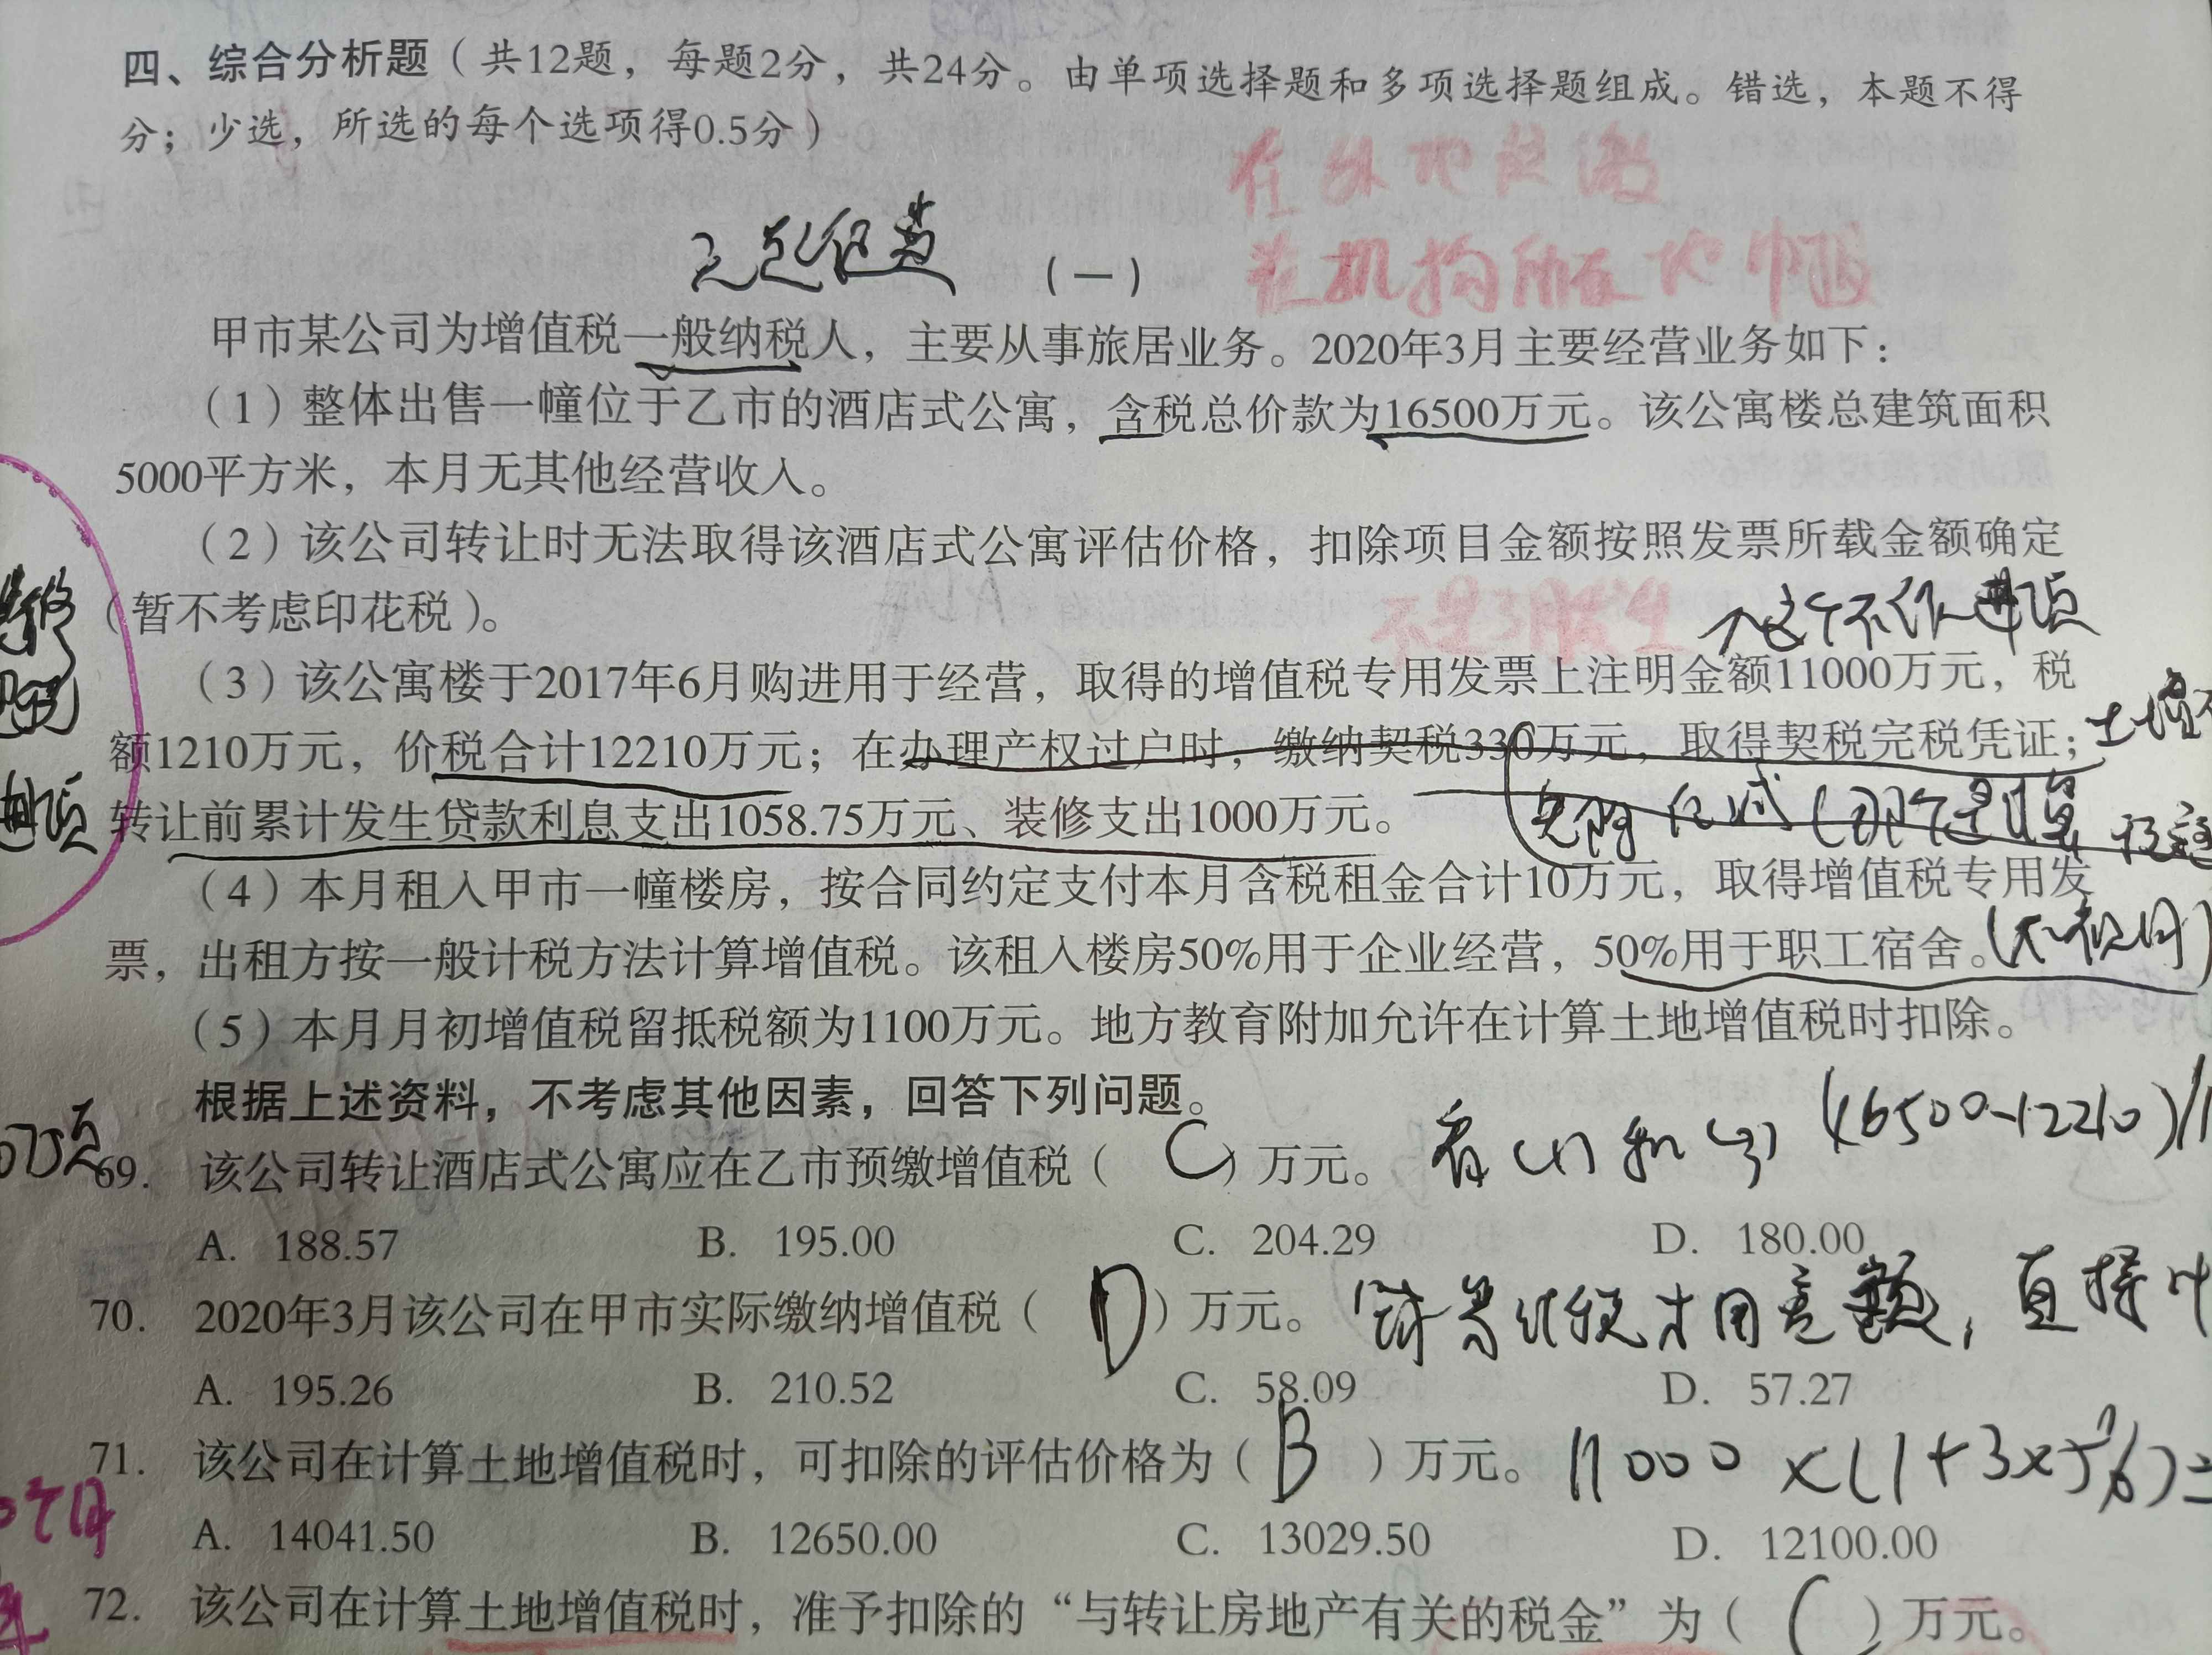 四、综合分析题（共12题，每题2分，共24分。由单项选择题和多项选择题组成。错选，本题不得
分；少选，所选的每个选项得0.5分）
在外地
在机构所在地申报
（一）
甲市某公司为增值税一般纳税人，主要从事旅居业务。2020年3月主要经营业务如下：
（1）整体出售一幢位于乙市的酒店式公寓，含税总价款为16500万元。该公寓楼总建筑面积
5000平方米，本月无其他经营收入。
（2）该公司转让时无法取得该酒店式公寓评估价格，扣除项目金额按照发票所载金额确定
（暂不考虑印花税）。
不是3月发生
这个不作进项
（3）该公寓楼于2017年6月购进用于经营，取得的增值税专用发票上注明金额11000万元，税
额1210万元，价税合计12210万元；在办理产权过户时，缴纳契税330万元，取得契税完税凭证；
转让前累计发生贷款利息支出1058.75万元、装修支出1000万元。
（4）本月租入甲市一幢楼房，按合同约定支付本月含税租金合计10万元，取得增值税专用发
票，出租方按一般计税方法计算增值税。该租入楼房50%用于企业经营，50%用于职工宿舍。
（5）本月月初增值税留抵税额为1100万元。地方教育附加允许在计算土地增值税时扣除。
根据上述资料，不考虑其他因素，回答下列问题。
看(1)和(3) (16500-12210)/1
69. 该公司转让酒店式公寓应在乙市预缴增值税（ C ）万元。
A. 188.57 B. 195.00 C. 204.29 D. 180.00
70. 2020年3月该公司在甲市实际缴纳增值税（ D ）万元。
A. 195.26 B. 210.52 C. 58.09 D. 57.27
71. 该公司在计算土地增值税时，可扣除的评估价格为（ B ）万元。 11000×(1+3×5%)=
A. 14041.50 B. 12650.00 C. 13029.50 D. 12100.00
72. 该公司在计算土地增值税时，准予扣除的“与转让房地产有关的税金”为（ C ）万元。